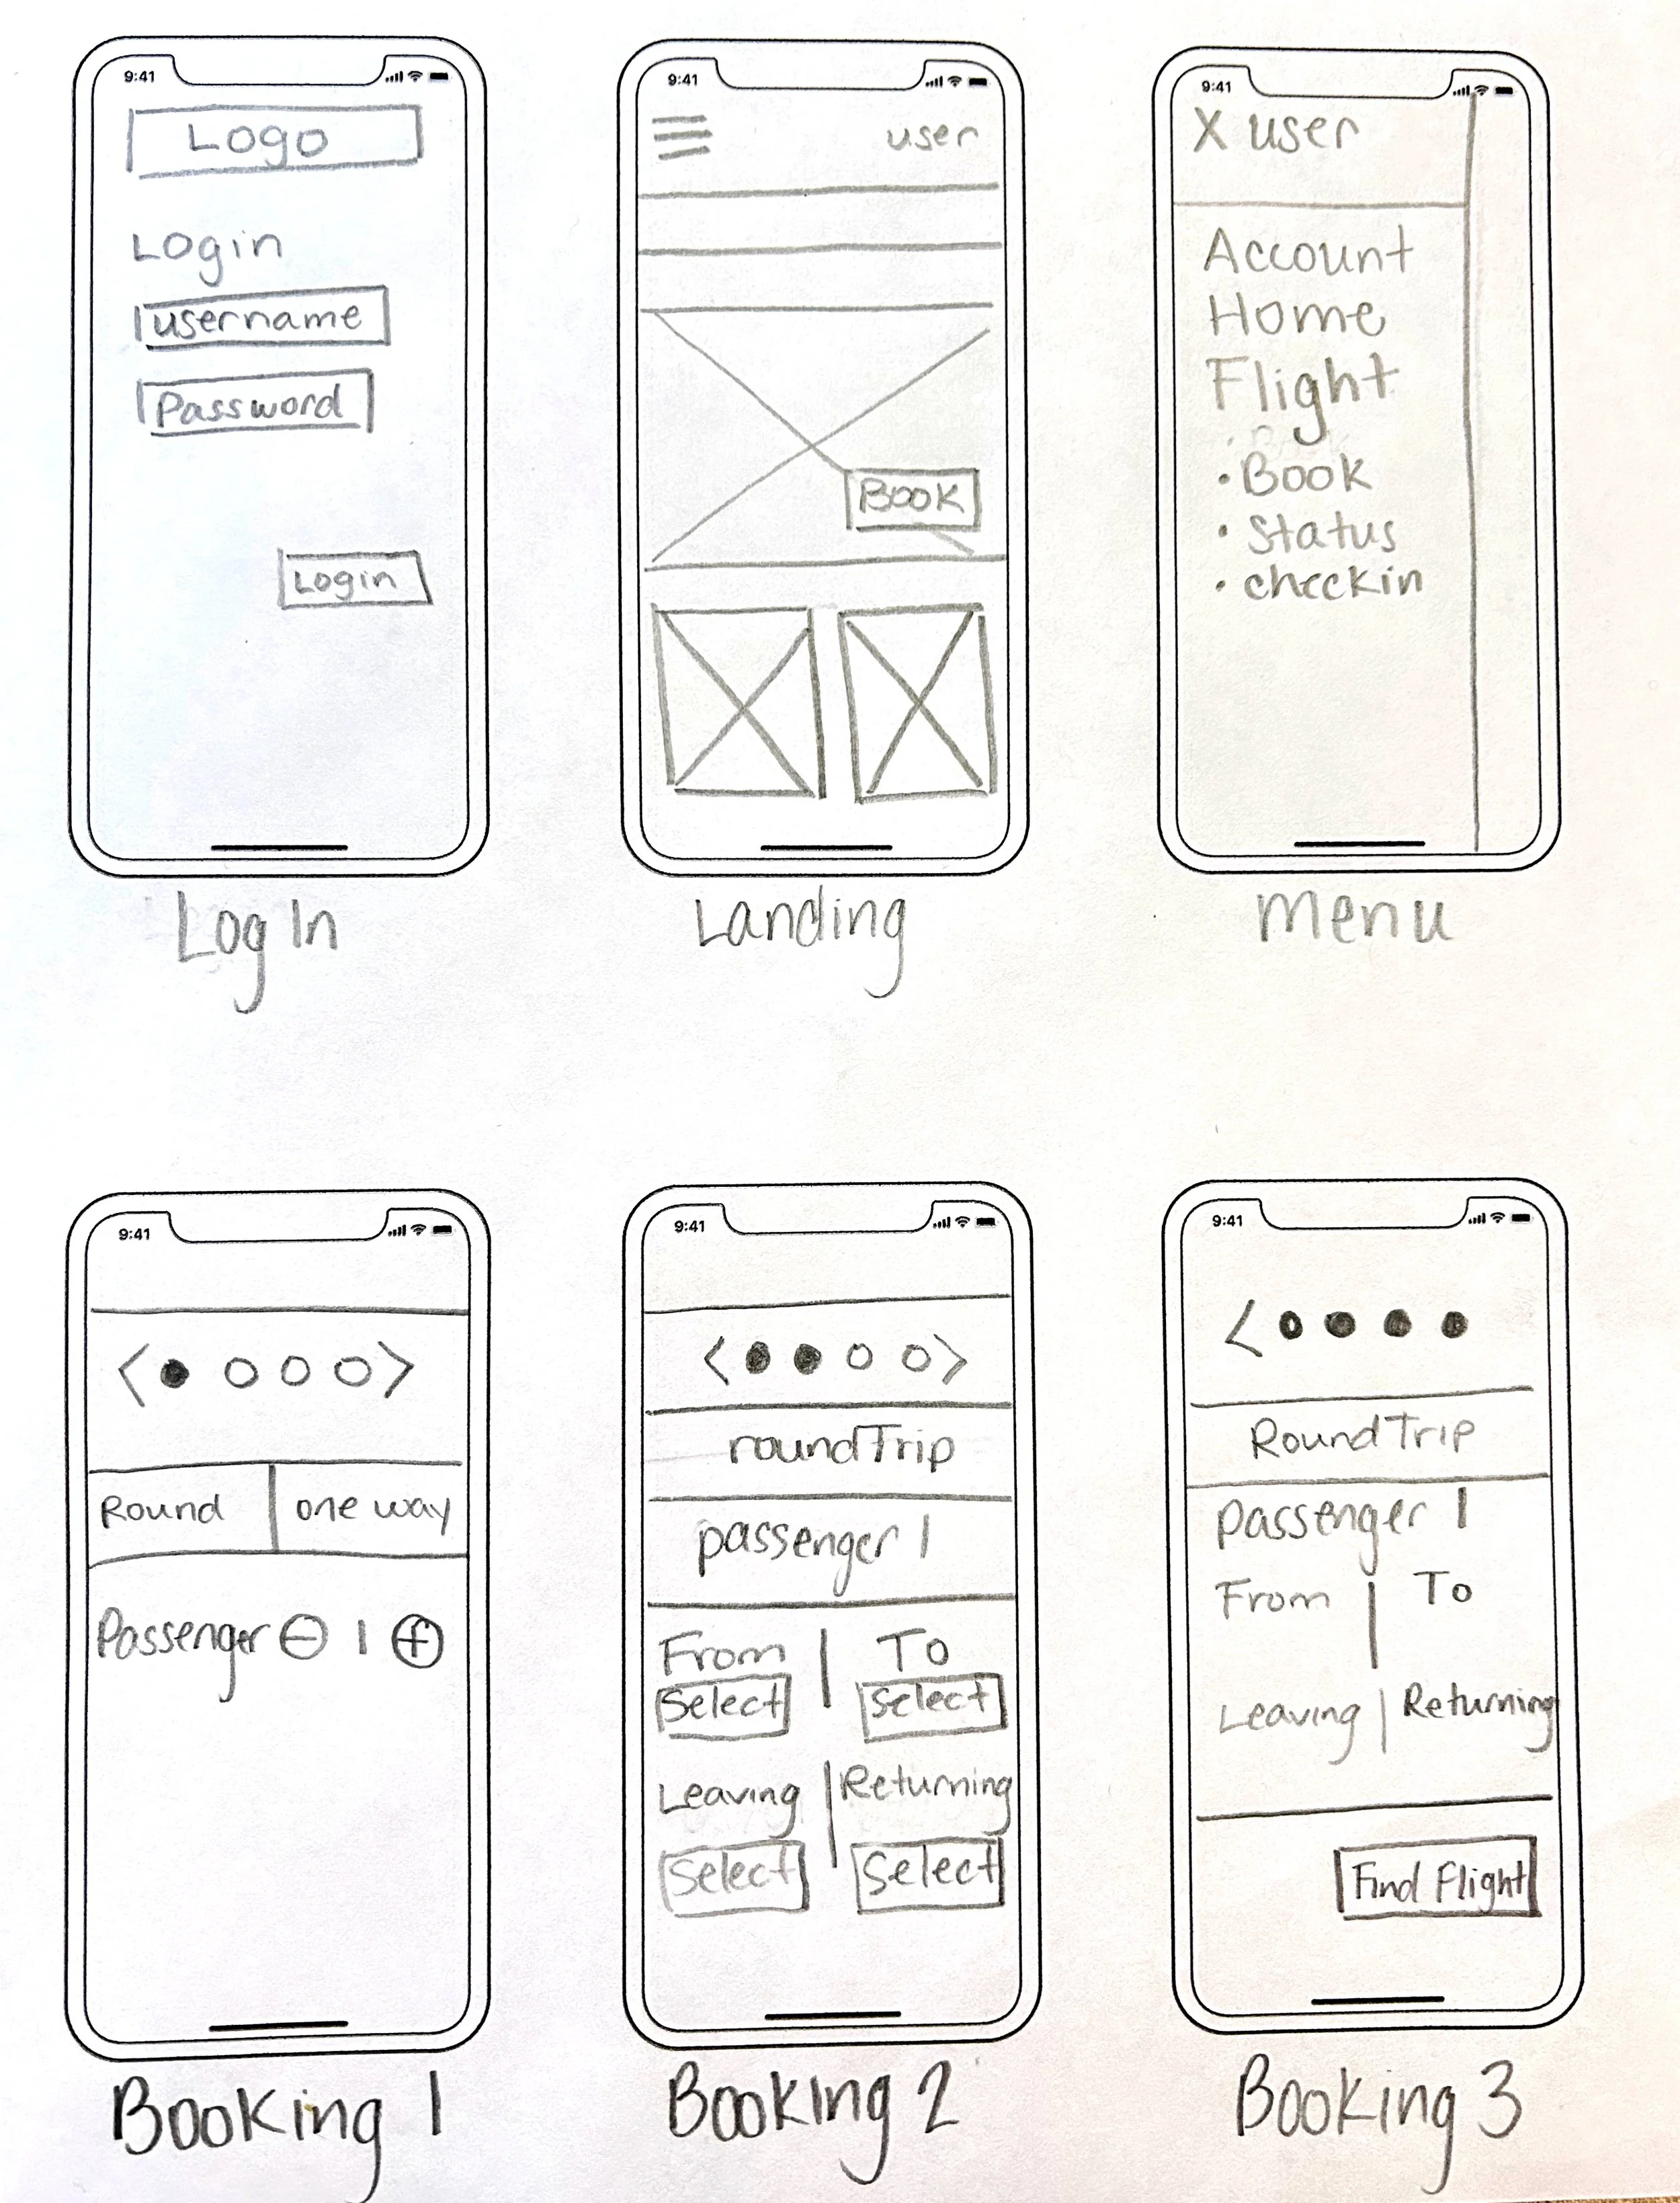 9:41
Logo
Login
username
Password
Login
Log In
9:41
user
Book
Landing
9:41
X user
Account
Home
Flight
• Book
• Status
• checkin
Menu
9:41
< >
Round | one way
Passenger - 1 +
Booking 1
9:41
< >
roundTrip
passenger 1
From | To
Select Select
Leaving | Returning
Select Select
Booking 2
9:41
<
Round Trip
Passenger 1
From | To
Leaving | Returning
Find Flight
Booking 3